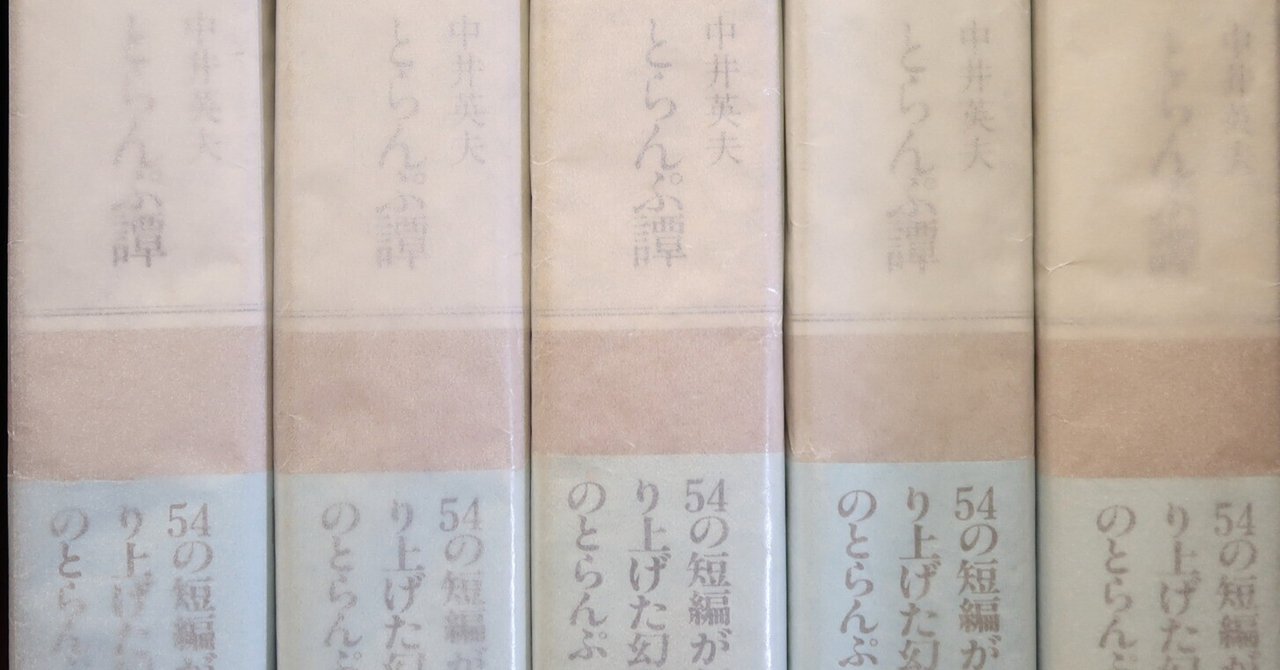 中井英夫
とらんぷ譚
54の短編が
り上げた幻
のとらんぷ
中井英夫
とらんぷ譚
54の短編が
り上げた幻
のとらんぷ
中井英夫
とらんぷ譚
54の短編が
り上げた幻
のとらんぷ
中井英夫
とらんぷ譚
54の短編が
り上げた幻
のとらんぷ
中井英夫
とらんぷ譚
54の短編が
り上げた
のとらんぷ